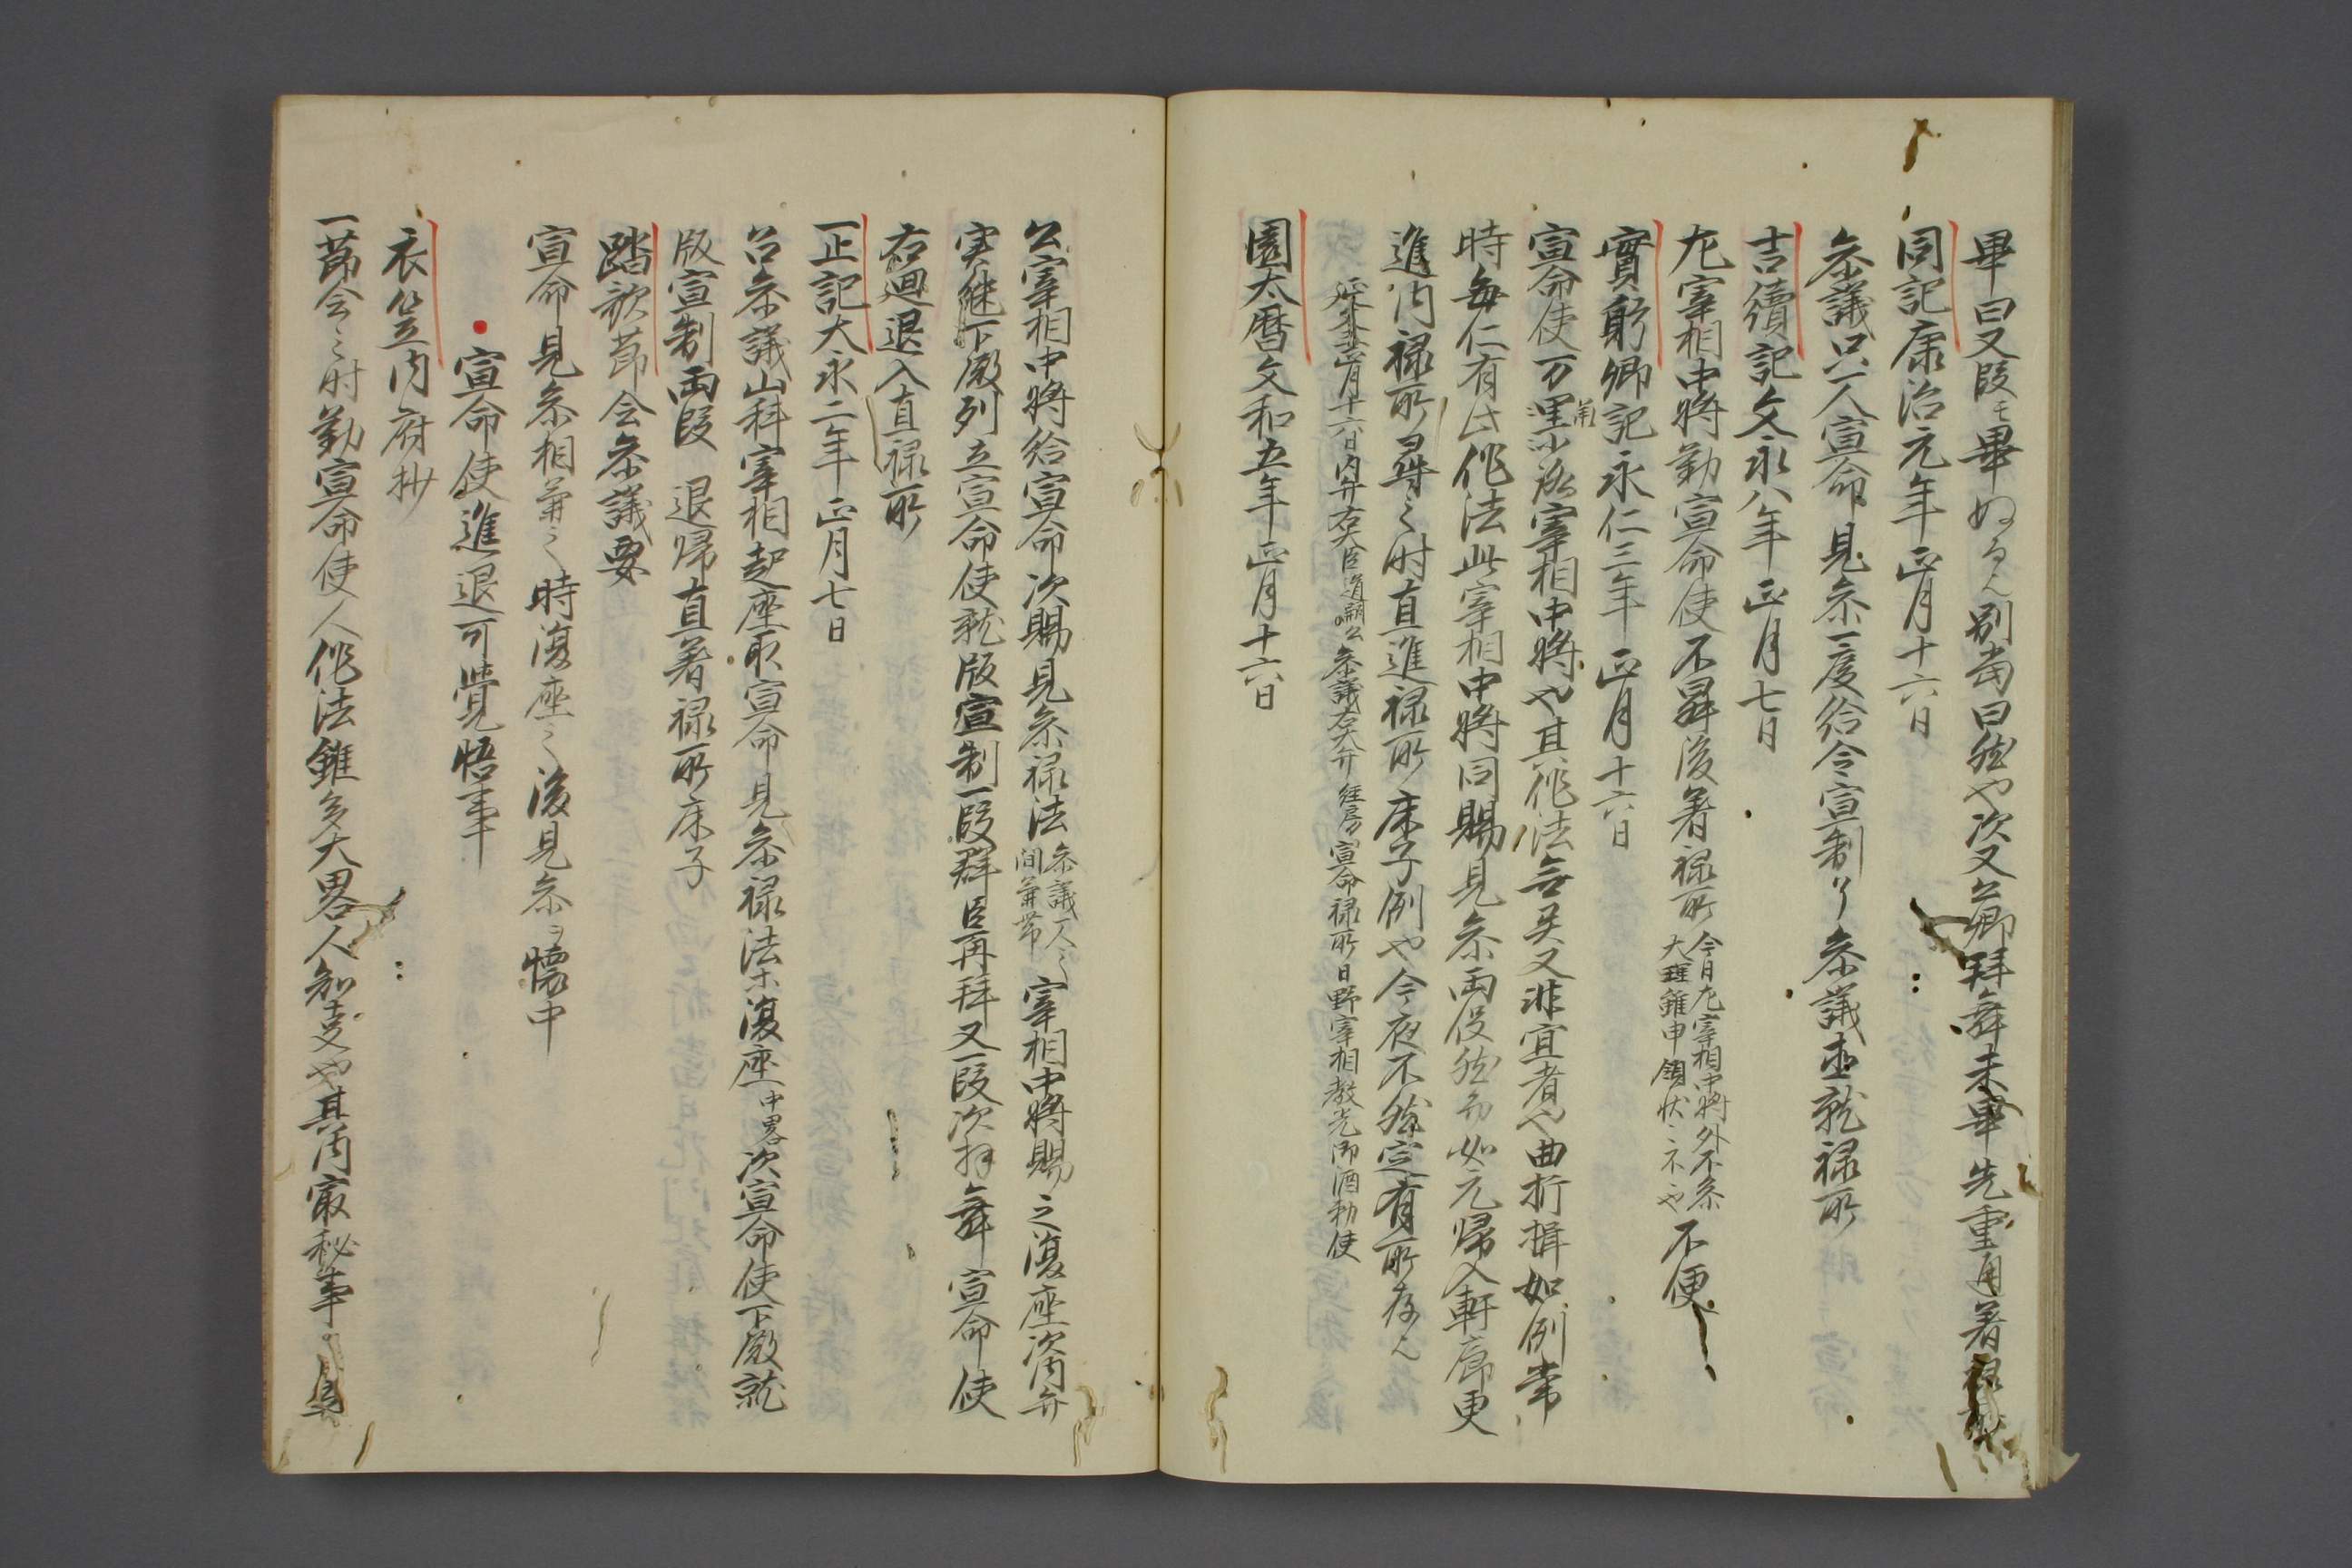 畢曰又段モ畢ぬるへ別当曰然や次又公卿拝舞未畢先重自着禄所
同記康治元年正月十六日
参議只一人宣命見参一度給令宣制了参議直就禄所
吉續記文永八年正月七日
左宰相中将勤宣命使不昇後着禄所今日左宰相中将外不参
大理雖申領状ニ不や不便
實躬卿記永仁三年正月十六日
宣命使万里小路宰相中将や其作法無失又非宜者や曲折揖如例常
時毎仁有此作法此宰相中将同賜見参両役然而如元帰入軒廊更
進内禄所尋之時直進禄所床子例や今夜不然定有所存へ
正月十六日内弁右大臣道嗣公参議右大弁経房宣命禄所日野宰相教光御酒勅使
園太暦文和五年正月十六日
公宰相中将給宣命次賜見参禄法参議一人之
間兼帯宰相中将賜之復座次内弁
実継下殿列立宣命使就版宣制一段群臣再拝又一段次拝舞宣命使
右廻退入直禄所
一止記大永二年正月七日
召参議山科宰相起座取宣命見参禄法等復座中畧次宣命使下殿就
版宣制両段退帰直著禄所床子
踏歌節会参議要
宣命見参相兼之時復座之後見参ヲ懐中
宣命使進退可覚悟事
衣笠内府抄
一節会之時勤宣命使人作法雖多大畧人知事や其内最秘事